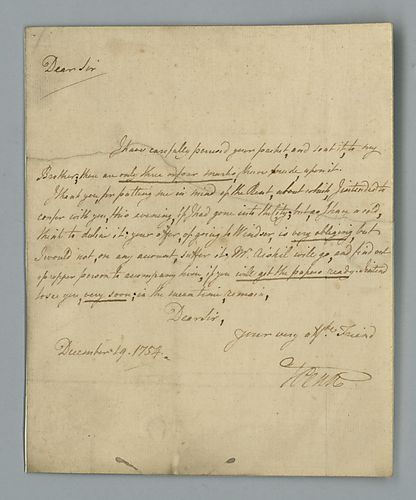 Dear Sir
I have carefully perused your packet, and sent it to my
Brother; there are only three or four remarks, I have made upon it.
I thank you, for putting me in mind of the Rent, about which I intended to
confer with you, this evening, if I had gone into the City; but as I have a cold,
think to defer it; your offer, of going to Windsor, is very obliging, but
I would not, on any account suffer it; Mr. will go, and find out
a proper person to accompany him, if you will get the papers ready. I intend
to see you, very soon; in the mean time remain,
Dear Sir,
your very affte. Friend
December 19. 1754.